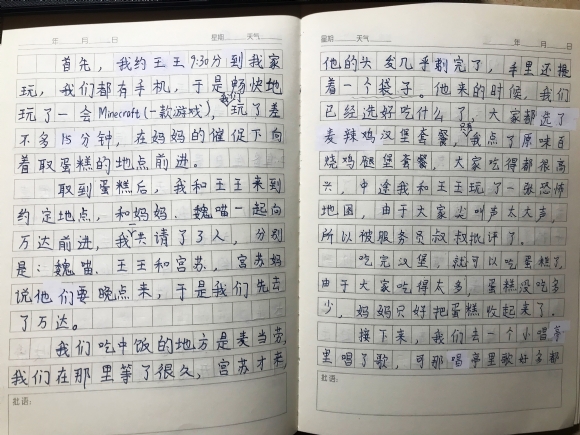 年 月 日 星期 天气
首先，我约王王9:30分到我家
玩，我们都有手机，于是我们畅快地
玩了一会Minecraft(一款游戏)，玩了差
不多15分钟，在妈妈的催促下向
着取蛋糕的地点前进。
取到蛋糕后，我和王王来到
约定地点，和妈妈、魏喵一起向
万达前进，我共请了3人，分别
是：魏喵、王王和宫苏，宫苏妈
说他们要晚点来，于是我们先去
了万达。
我们吃中饭的地方是麦当劳，
我们在那里等了很久，宫苏才来，
批语：
星期 天气 年 月 日
他的头发几乎剃完了，手里还提
着一个袋子。他来的时候，我们
已经选好吃什么了，大家都选了
麦辣鸡汉堡套餐，只有我点了原味百
烧鸡腿堡套餐，大家吃得都很高
兴，中途我和王王玩了一张恐怖
地图，由于大家尖叫声太大声，
所以被服务员叔叔批评了。
吃完汉堡，就可以吃蛋糕了，
由于大家吃得太多，蛋糕没吃多
少，妈妈只好把蛋糕收起来了。
接下来，我们去一个小唱亭
里唱了歌，可那唱亭里歌好多都
批语：